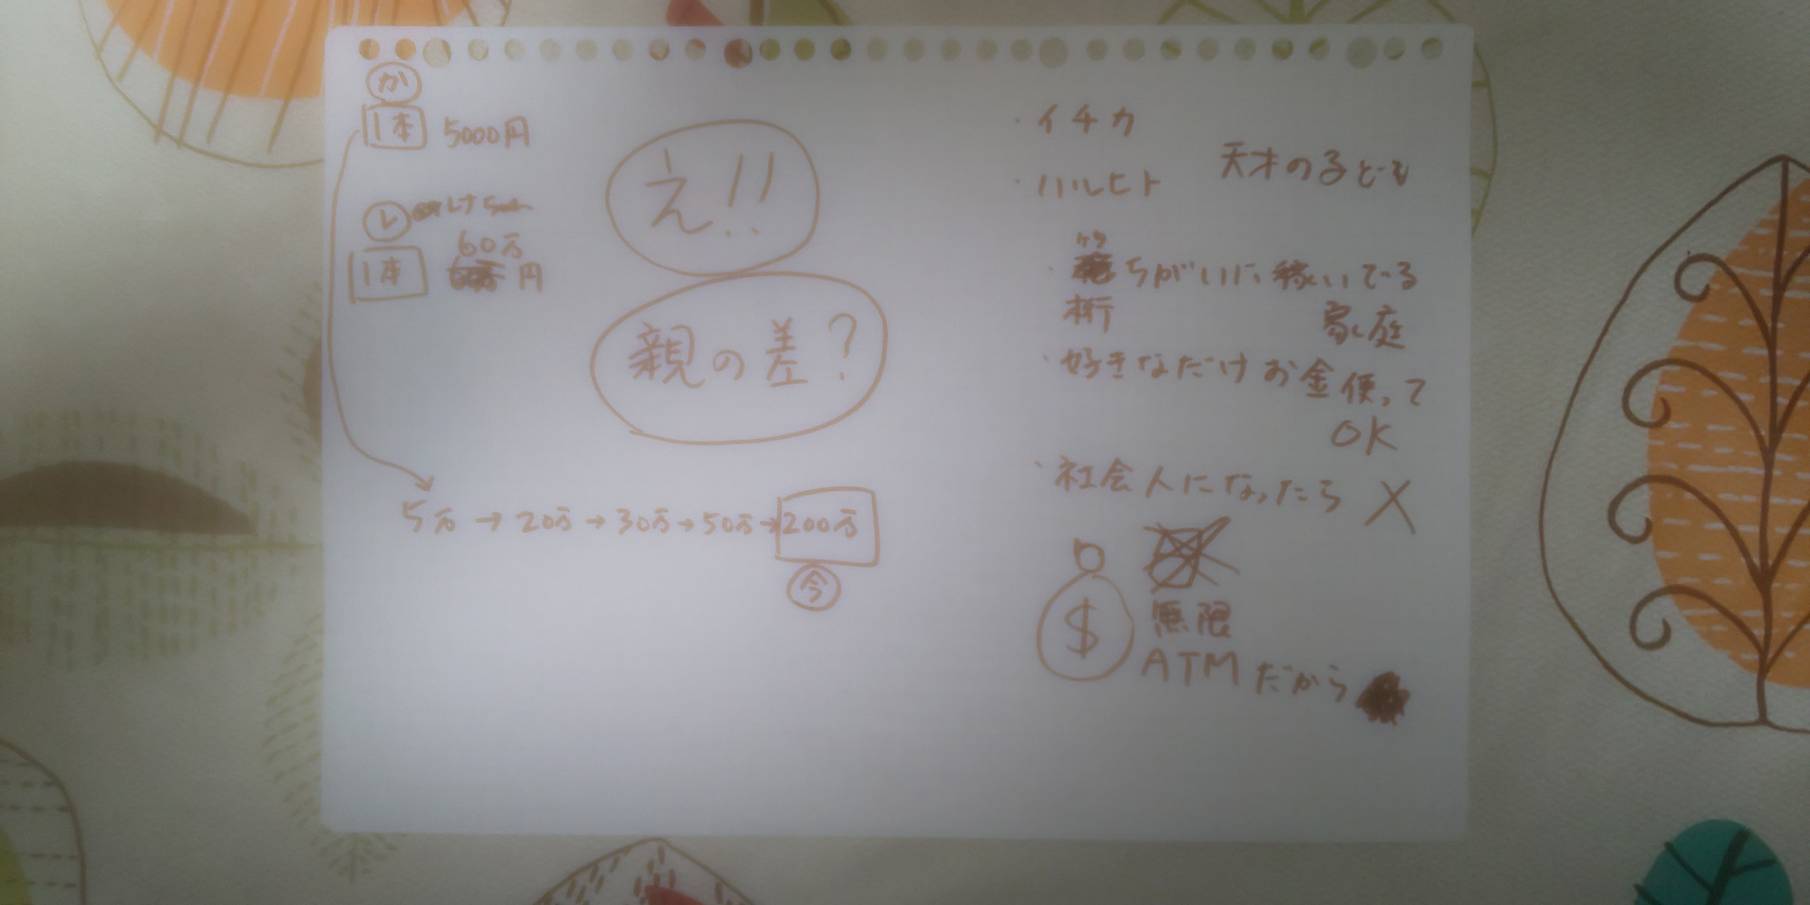 か
1本 5000円
レ
60万
1本 円
え!!
親の差?
5万→20万→30万→50万→200万
今
・イチカ
・ハルヒト
天才の子ども
ケタ
・ちがいに稼いでる
桁
家庭
・好きなだけお金使って
OK
・社会人になったら X
$
無限
ATMだから